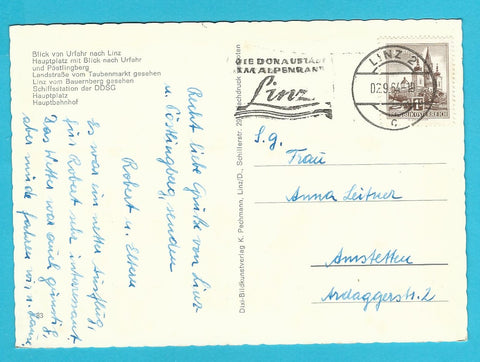 Blick von Urfahr nach Linz
Hauptplatz mit Blick nach Urfahr
und Pöstlingberg
Landstraße vom Taubenmarkt gesehen
Linz vom Bauernberg gesehen
Schiffsstation der DDSG
Hauptplatz
Hauptbahnhof
DIE DONAUSTADT
AM ALPENRAND
Linz
LINZ 2
02.9.64
c
REPUBLIK ÖSTERREICH
Recht liebe Grüße von Linz
u. Pöstlingberg, senden
Robert u. Eltern
Es war ein netter Ausflug,
für Robert sehr interessant.
Das Wetter war auch günstig
aber müde fahren wir n. Hause
Dixi-Bildkunstverlag K. Pachmann, Linz/D., Schillerstr. Nachdruck verboten
S.g.
Frau
Anna Leitner
Amstetten
Ardaggerstr. 2